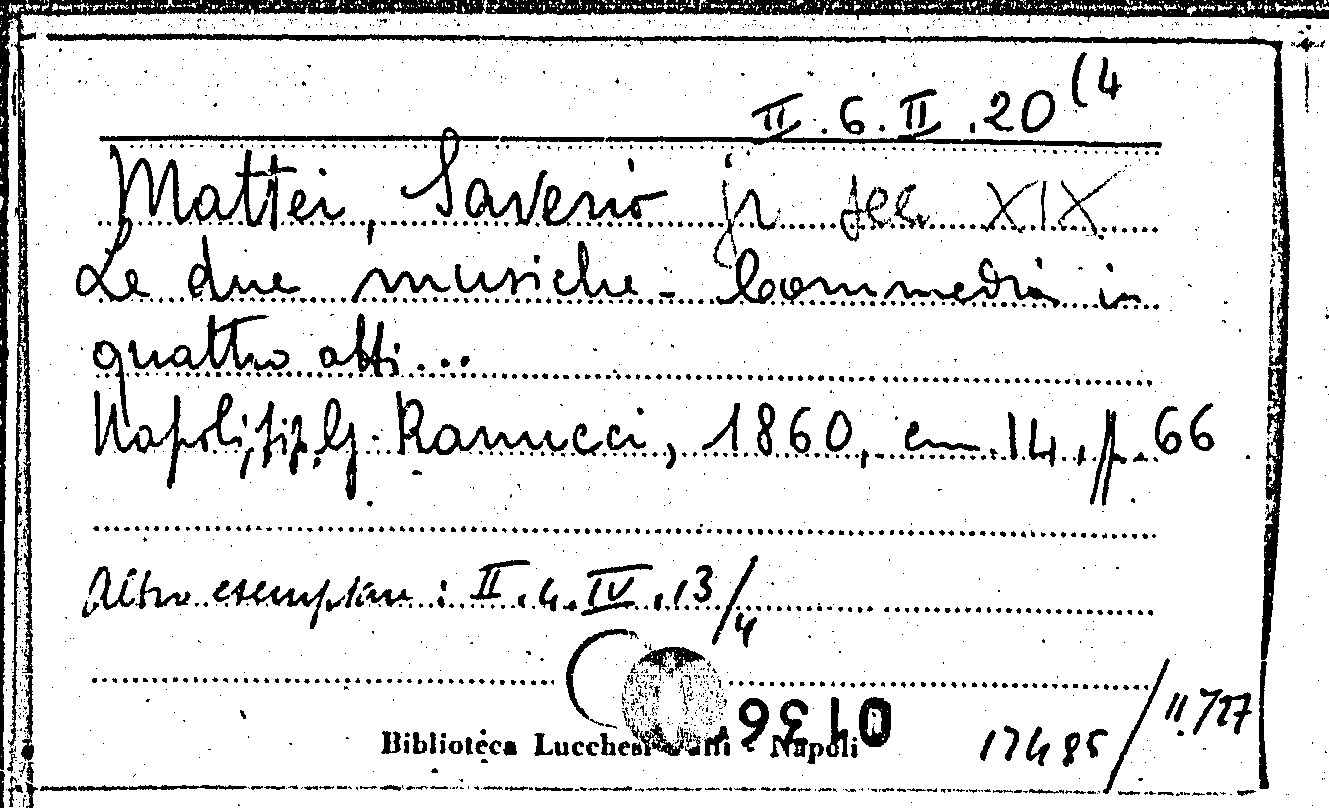 II.6.II.20(4
Mattei, Saverio jr sec XIX
Le due musiche - Commedia in
quattro atti...
Napoli, tip. G. Ranucci, 1860, cm. 14, p. 66
Altro esemplare: II.4.IV.13/4
Biblioteca Lucchesi Palli - Napoli
17485/II.727